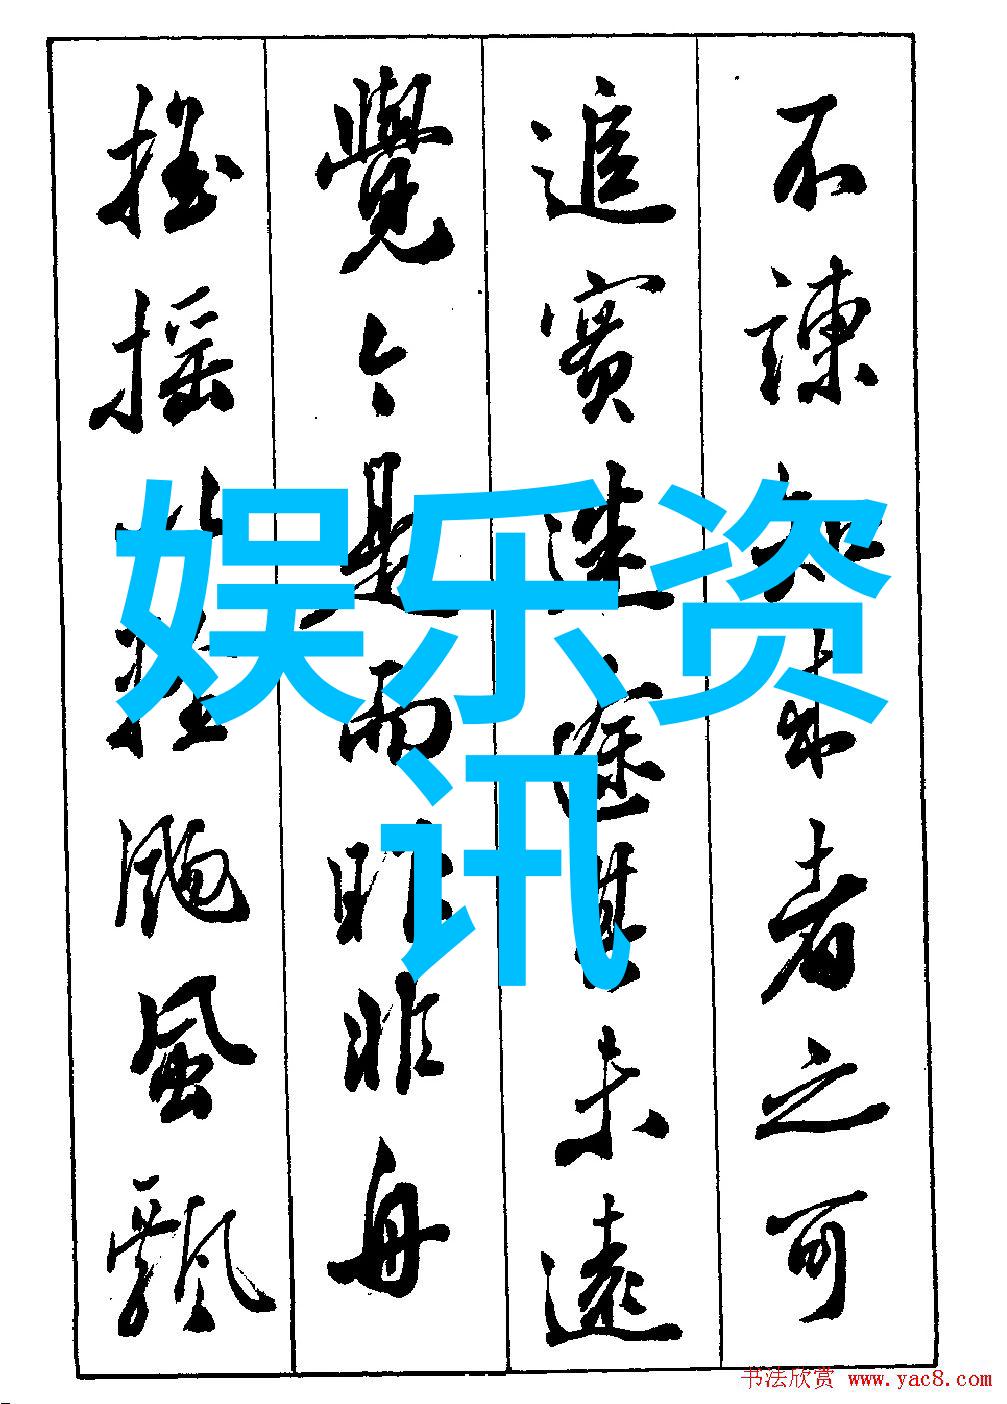 不諫知来者之可
追實迷途其未遠
覺今是而昨非舟
搖搖以輕颺風飄
娱乐资讯
书法欣赏 www.yac8.com